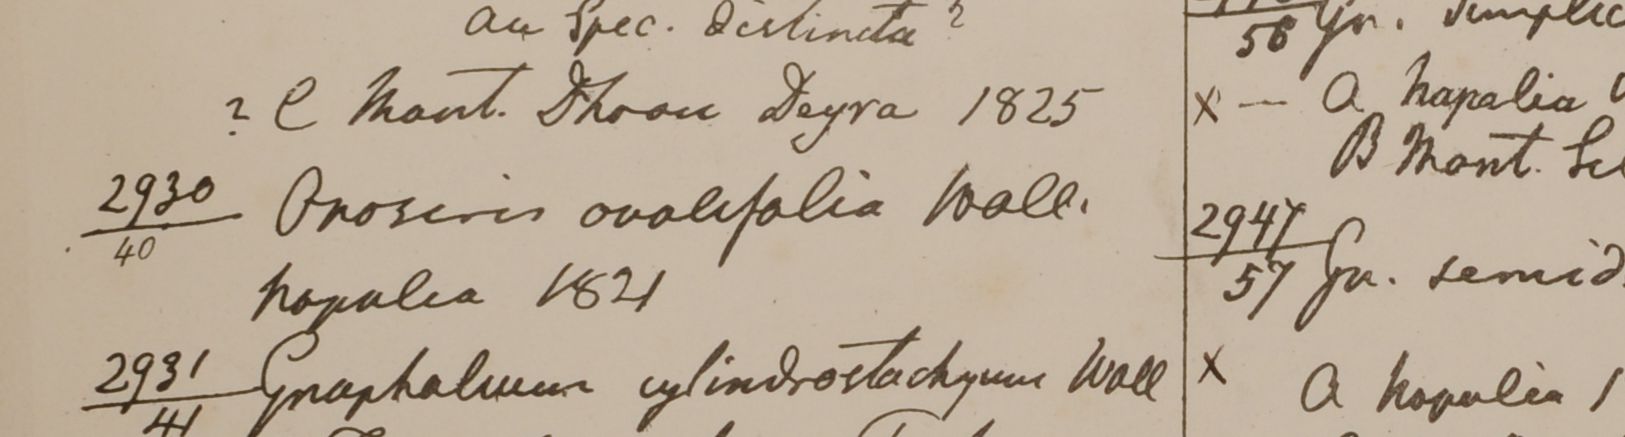 an Spec. distincta?
? C Mont. Dhoon Deyra 1825
2930
40
Onoseris ovalifolia Wall.
Napalia 1821
2931
41
Gnaphalium cylindrostachyum Wall
56 Gn.
x — A Napalia
B Mont.
2947
57
Gn. semid
x
A Napalia 1